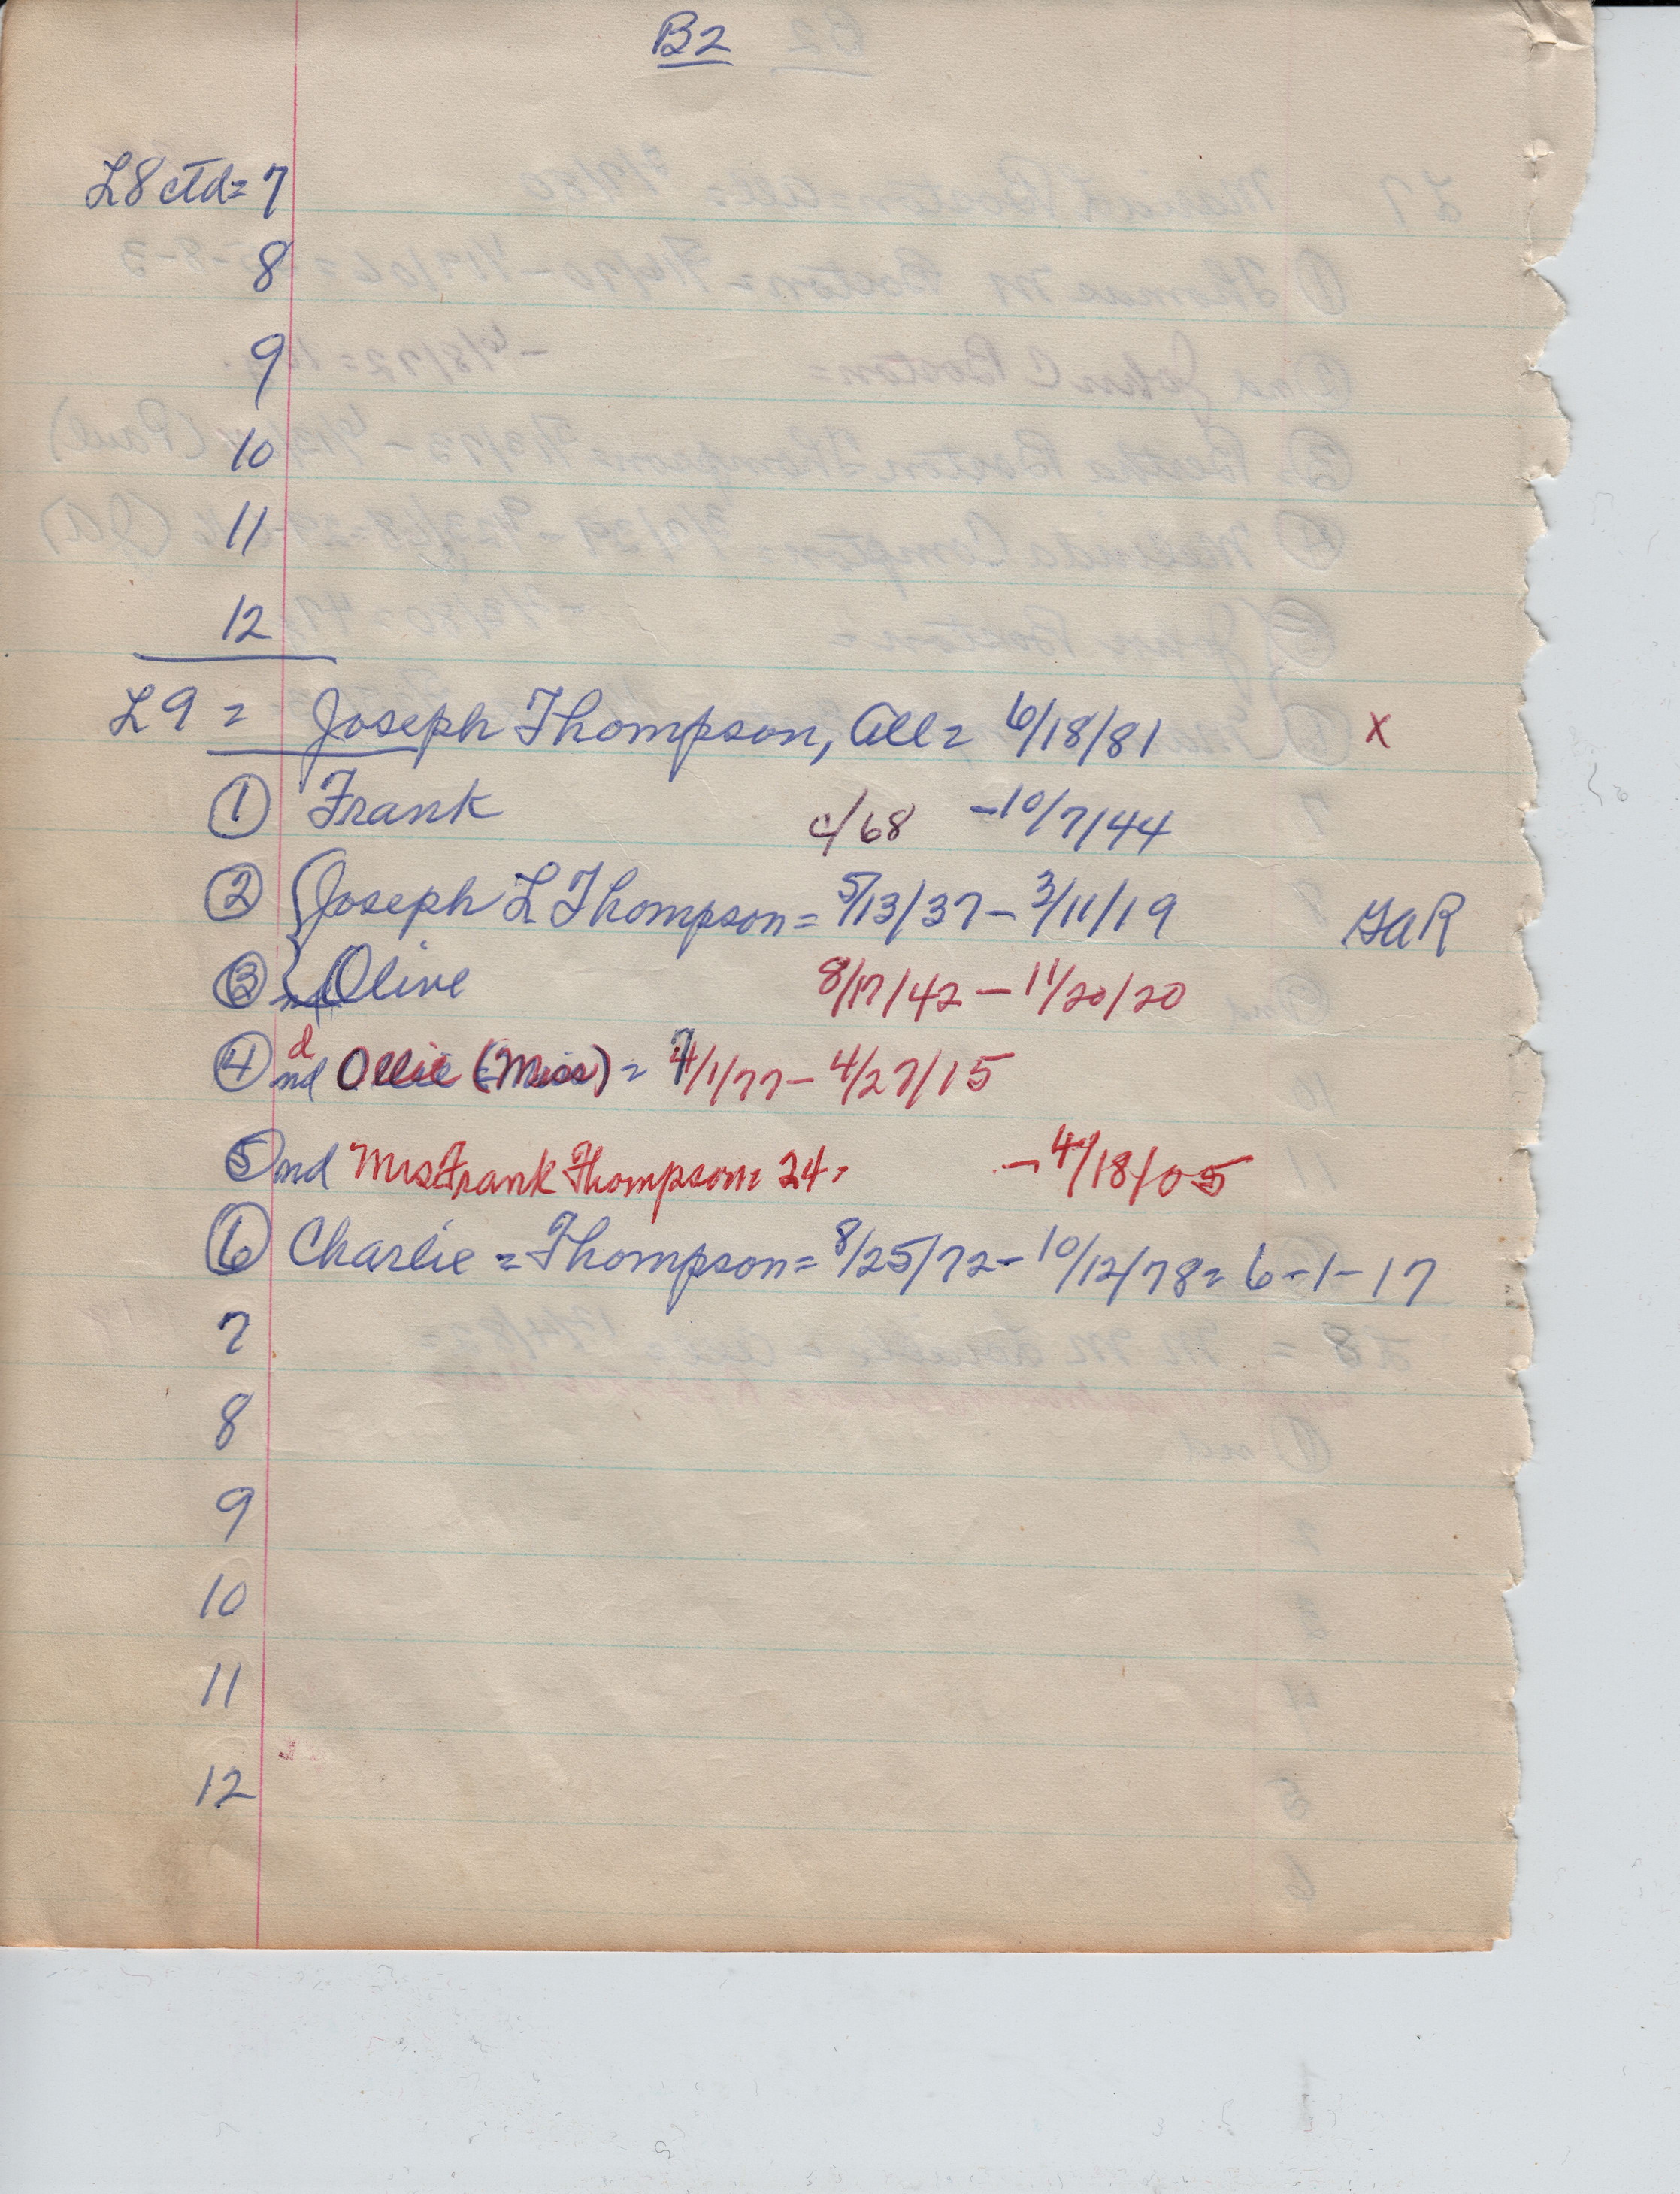 B2
L8 ctd= 7
8
9
10
11
12
L9 = Joseph Thompson, All= 6/18/81 X
① Frank c/68 -10/7/44
② Joseph L Thompson= 5/13/37- 3/11/19 GAR
③ Olive 8/17/42 - 11/20/20
④ nd Ollie (Miss) = /1/77- 4/27/15
⑤ nd Mrs Frank Thompson= 24= - 4/18/05
⑥ Charlie = Thompson= 8/25/72- 10/12/78= 6-1-17
7
8
9
10
11
12